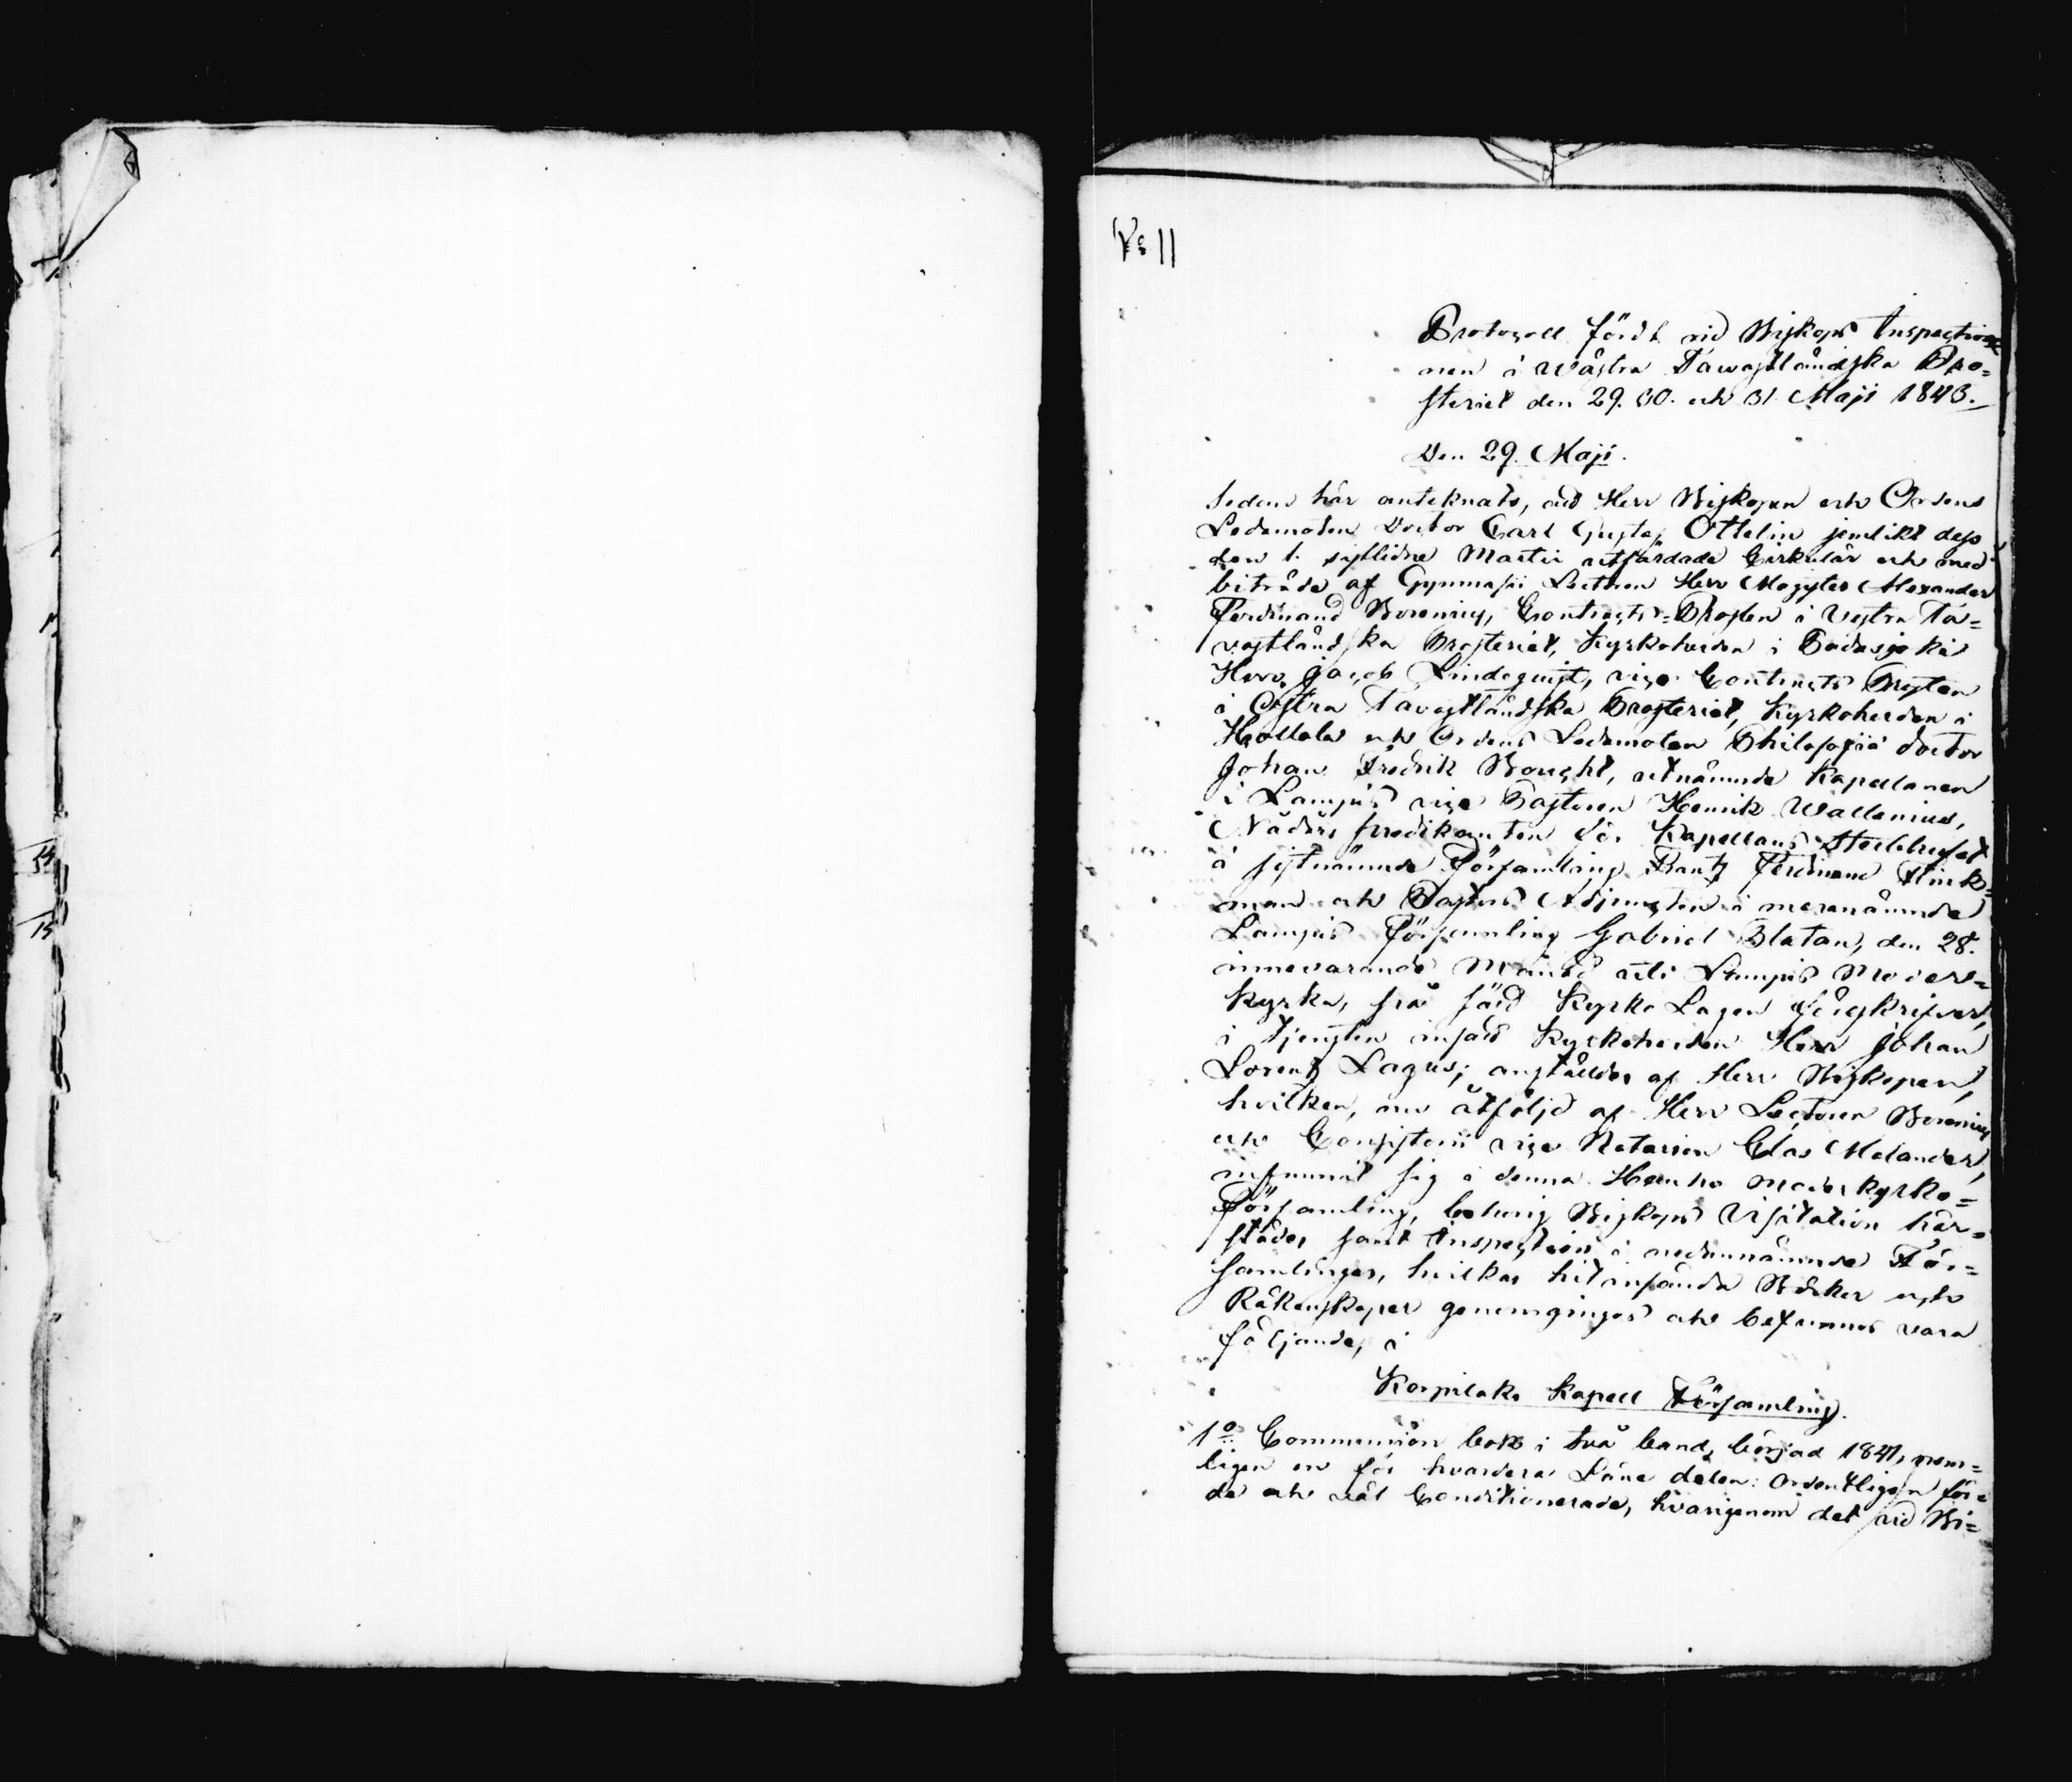 No 11
Protocoll fördt vid Biskops Inspectio-
nen i Wästra Tawastländska Pro=
steriet den 29. 30. och 31 Maji 1843.
Den 29. Maji.
Sedan här anteknats, att Herr Biskopen och Ordens
Ledamoten Doctor Carl Gustaf Ottelin jemlikt dess
den 1. sistlidne Martii utfärdade Cirkulär och med
biträde af Gymnasii Lectoren Herr Magister Alexander
Ferdinand Borenius, Contracts=Prosten i Vestra Ta=
vastländska Prosteriet, Kyrkoherden i Padasjoki
Herr Jacob Lindequist, vice Contracts Prosten
i Östra Tavastländska Prosteriet, Kyrkoherden i
Hollola och Ordens Ledamoten Philosophiæ Doctor
Johan Fredrik Bonsdorff, utnämnde Kapellanen
i Lampis vice Pastoren Henrik Wallenius,
Nådårs predikanten för Kapellans Sterbhuset
i sistnämnde Församling Frantz Ferdinand Flink=
man och Pastors Adjuncten i merenämnde
Lampis Församling Gabriel Platan, den 28.
innevarande Månad uti Lampis Moder=
kyrka, på sätt Kyrko Lagen föreskrifver,
i tjensten insatt Kyrkoherden Herr Johan
Lorentz Lagus; anställdes af Herr Biskopen,
hvilken, nu åtföljd af Herr Lectoren Borenius
och Consistorii vice Notarien Clas Melander,
infunnit sig i denna Hauho Moderkyrko=
Församling, behurig Biskops Visitation här=
städes samt Inspection i nedannämnde För=
samlingar, hvilkas hitinsända Böcker och
Räkenskaper genomgingos och befunnos vara
följande, i
Korpilaks Kapell Församling.
1o Communion bok i två band, börjad 1841, nem=
ligen en för hvardera Läne delen: ordentligen för=
de och väl Conditionerade, hvarigenom det vid Bi=